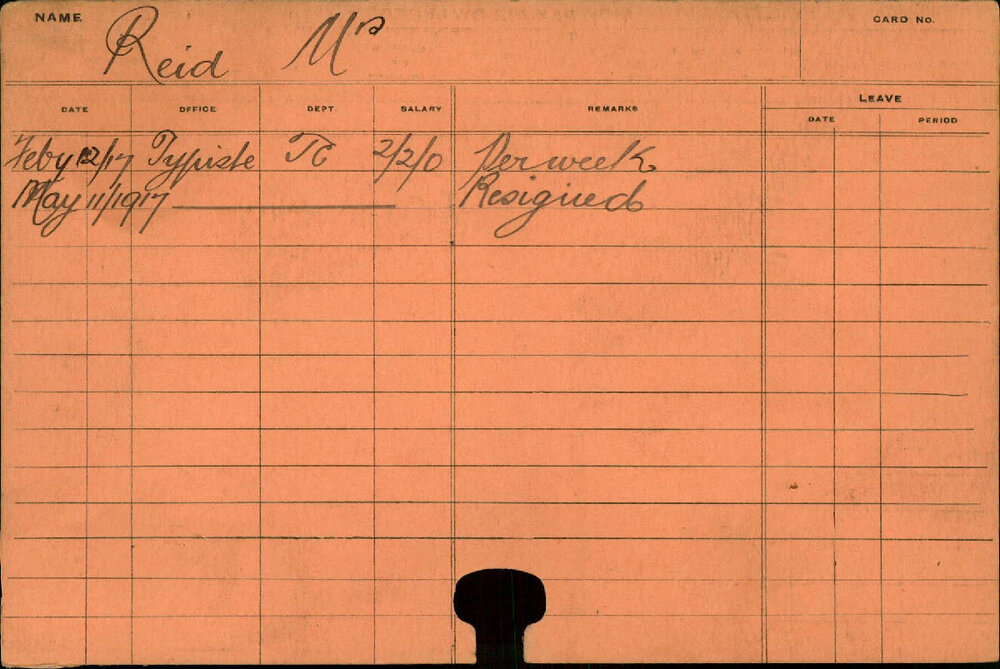 NAME Reid Mrs CARD No.
DATE OFFICE DEPT. SALARY REMARKS LEAVE
DATE PERIOD
Feby 12/17 Typiste TC 2/2/0 Per week
May 11/1917 Resigned